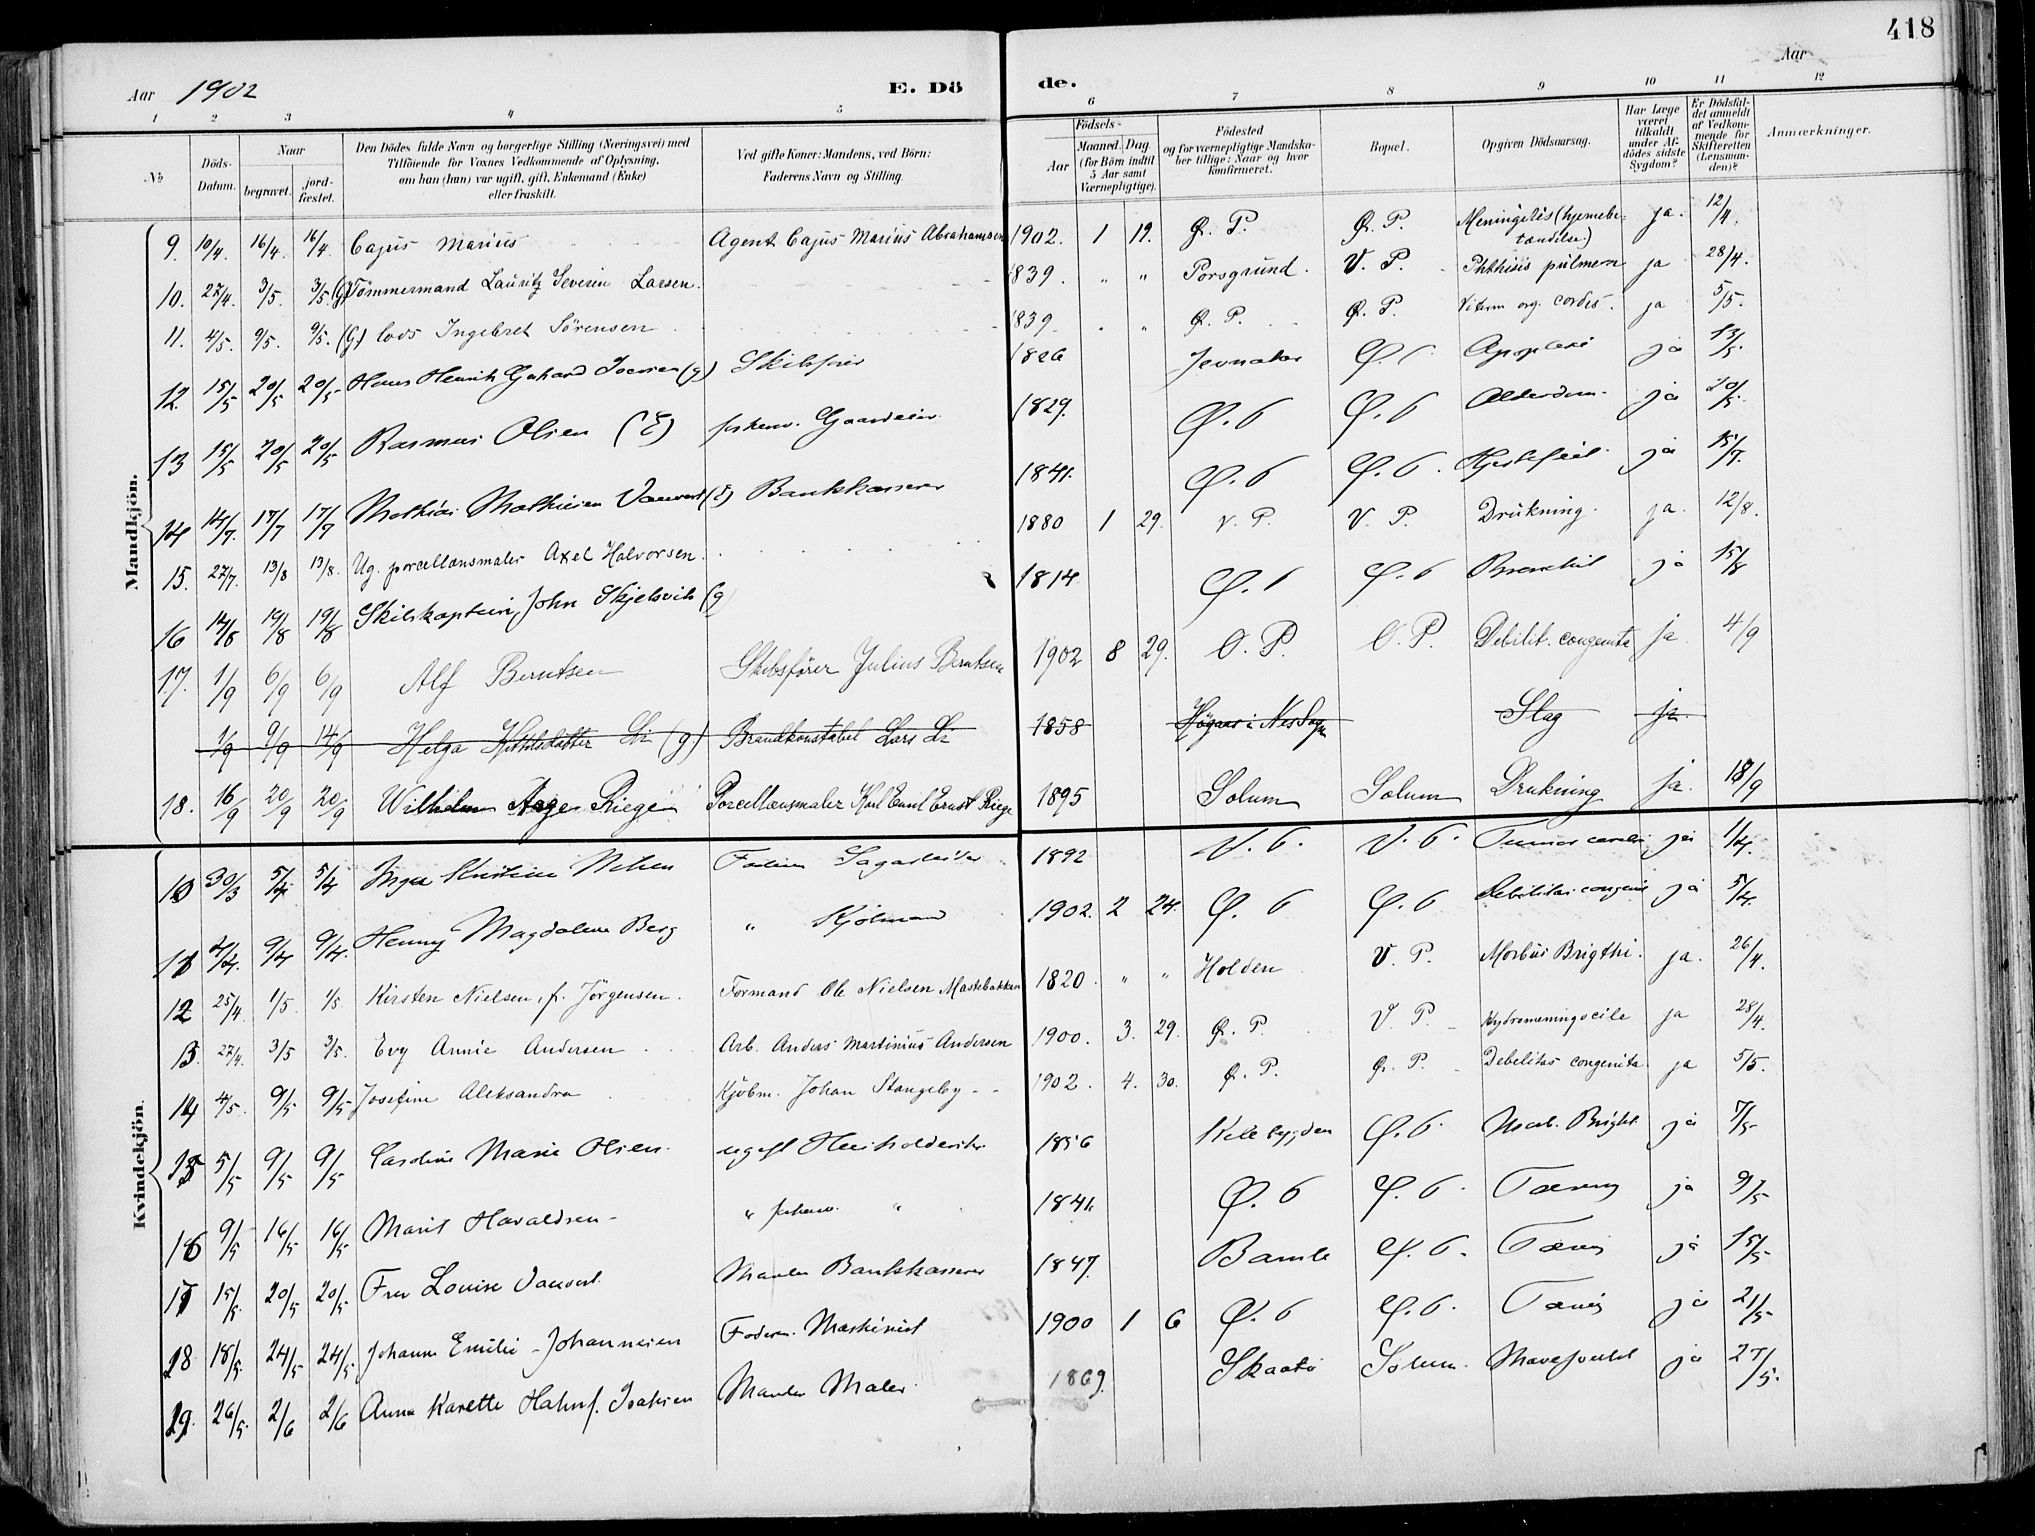 418
Aar 1902 E. Dö de. Aar
1 2 3 4 5 6 7 8 9 10 11 12
№
Döds-Datum.
Naar
begravet. jord-fæstet.
Den Dödes fulde Navn og borgerlige Stilling (Næringsvei) med
Tilföiende for Voxnes Vedkommende af Oplysning,
om han (hun) var ugift, gift, Enkemand (Enke)
eller fraskilt.
Ved gifte Koner: Mandens, ved Börn:
Faderens Navn og Stilling.
Födsels-
Aar Maaned. Dag
(for Börn indtil
5 Aar samt
Værnepligtige).
Födested
og for værnepligtige Mandska-
ber tillige: Naar og hvor
konfirmeret.
Bopæl.
Opgiven Dödsaarsag.
Har Læge
været
tilkaldt
under Af-
dödes sidste
Sygdom?
Er Dödsfal-
det anmeldt
af Vedkom-
mende for
Skifteretten
(Lensman-
den)?
Anmærkninger.
Mandkjön.
9. 10/4. 16/4. 16/4. Cajus Marius Agent Cajus Marius Abrahamsen 1902. 1 19. Ø. P. Ø. P. Meningitis (hjernebe-
tændelse) ja. 12/4.
10. 27/4. 3/5. 3/5. (g) Tömmermand Lauritz Severin Larsen. 1839. " " Porsgrund. V. P. Phthisis pulmon ja 28/4.
11. 4/5. 9/5. 9/5. (g) lods Ingebret Sörensen 1839. " " Ø. P. Ø. P. Vitium org. cordis. ja 5/5.
12. 15/5 20/5 20/5 Hans Henrik Gerhard (g) Skibsfører 1826 Jevnaker Ø. P. Apoplexi ja 13/5.
13 15/5 20/5 20/5 Rasmus Olsen (E) forhenv. Gaardeier 1829. Ø. P. Ø. P. Alderdom. ja 20/5.
14 14/7. 17/7 17/7 Mathias Mathiesen Vauvert (E) Bankkasserer 1841. Ø. P. Ø. P. Hjertefeil. ja 15/7.
15. 27/7. 13/8 13/8. Ug. porcellænsmaler Axel Halvorsen. 1880 1 29. V. P. V. P. Drukning. ja. 12/8.
16 14/8 19/8 19/8 Skibskaptein John Skjelsvik (g) 1814 Ø. P. Ø. P. Bronchit ja 15/8
17. 1/9 6/9 6/9 Alf Berntsen Skibsförer Julius Berntsen 1902 8 29. Ø. P. Ø. P. Debilit. congenita ja 4/9
1/9 9/9 14/9 Helga Kittilsdatter Li (g) Brandkonstabel Lars Li 1858 i Nes Slag ja
18. 16/9 20/9 20/9 Wilhelm Aage Riege Porcellænsmaler Karl Emil Ernst Riege 1895 Solum Solum Drukning ja. 18/9
Kvindekjön.
10 30/3 5/4 5/4 Inga Kristine Nilsen Faderen Sagarbeider 1892 V. P. V. P. Tumor cerebri ja 1/4.
11 4/4. 9/4 9/4. Henny Magdalene Berg " Kjølmand 1902. 2 24. Ø. P. Ø. P. Debilitas congenit ja 5/4.
12 25/4 1/5. 1/5 Kirsten Nielsen, f. Jörgensen. Formand Ole Nielsen Mastebakken 1820. " " Holden V. P. Morbus Brigthi. ja. 26/4.
13. 27/4. 3/5 3/5. Evy Annie Andersen Arb. Anders Martinius Andersen 1900. 3. 29. Ø. P. V. P. Hydromeningocile ja 28/4.
14 4/5. 9/5 9/5 Josefine Aleksandra Kjøbm. Johan Stangeby 1902. 4. 30. Ø. P. Ø. P. Debelitas congenita. ja 5/5.
15 5/5 9/5 9/5 Caroline Marie Olsen. ugift Husholderske 1856 Kilebygden Ø. P. Morb. Bright. ja 7/5
16 9/5 16/5 16/5 Marit Havaldsen " forhenv. " 1841. Ø. P. Ø. P. Tæring ja 9/5
17 15/5. 20/5 20/5 Fru Louise Vauvert Manden Bankkasserer 1847. Bamle Ø. P. Tæring ja 15/5
18 18/5. 24/5 24/5 Johanne Emilie Johannesen Faderen Maskinist 1900 1 6 Ø. P. Ø. P. Tæring ja 21/5
19. 26/5. 2/6 2/6 Anna Karette Hahn f. Isaksen Manden Maler 1869. Skaatø Solum. ja 27/5.